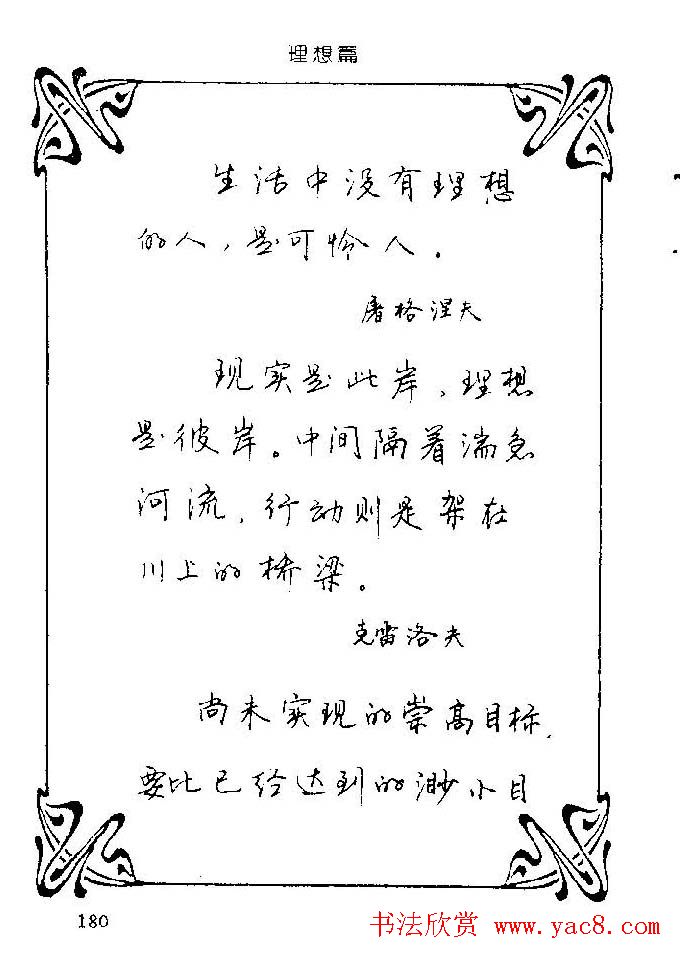 理想篇
生活中没有理想
的人，是可怜人．
屠格涅夫
现实是此岸，理想
是彼岸。中间隔着湍急
河流，行动则是架在
川上的桥梁。
克雷洛夫
尚未实现的崇高目标，
要比已经达到的渺小目
180
书法欣赏 www.yac8.com